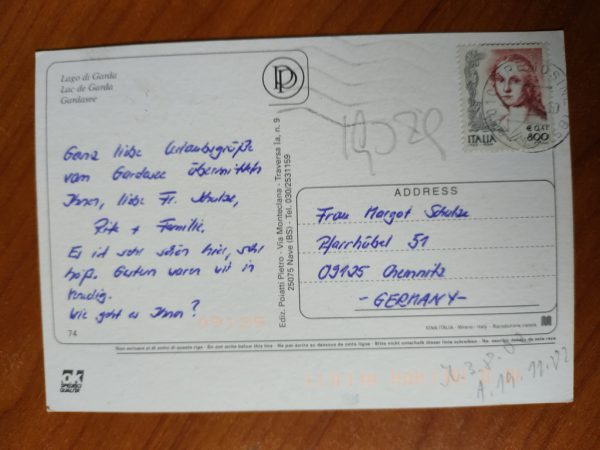 Lago di Garda
Lac de Garda
Gardasee
Ganz liebe Urlaubsgrüße
vom Gardasee übermitteln
Ihnen, liebe Fr. Schulze,
+ Familie.
Es ist sehr schön hier, sehr
heiß. Gestern waren wir in
Venedig.
Wie geht es Ihnen?
74
OK
SPECIAL
QUALITÀ
Ediz. Poiatti Pietro - Via Monteclana - Traversa Ia, n. 9
25075 Nave (BS) - Tel. 030/2531159
ITALIA
€ 0,41
800
ADDRESS
Frau Margot Schulze
Pfarrhübel 51
09125 Chemnitz
- GERMANY -
KINA ITALIA - Milano - Italy - Riproduzione vietata
Non scrivere al di sotto di questa riga - Do not write below this line - Ne pas écrire au dessous de cette ligne - Bitte nicht unterhalb dieser linie schreiben -
A. 19.11.02